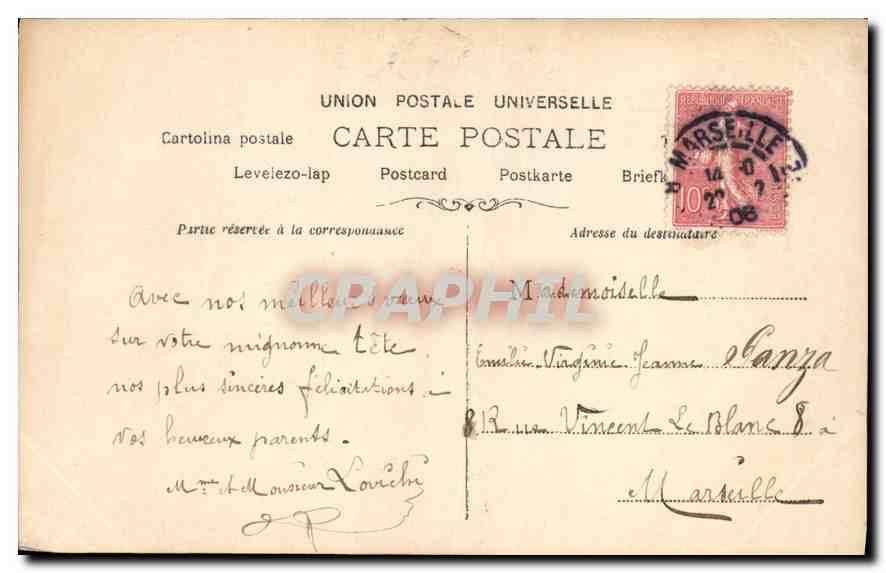 UNION POSTALE UNIVERSELLE
Cartolina postale CARTE POSTALE
Levelezo-lap Postcard Postkarte Briefk
REPUBLIQUE FRANÇAISE
10
MARSEILLE
14
22 2
06
Partie réservée à la correspondance
Adresse du destinataire
CPAPHIL
Avec nos meilleurs vœux
sur votre mignonne tête
nos plus sincères félicitations à
vos heureux parents.
Mme et Monsieur
Mademoiselle
Emilie Virginie Jeanne Panza
8 Rue Vincent Le Blanc 8 à
Marseille